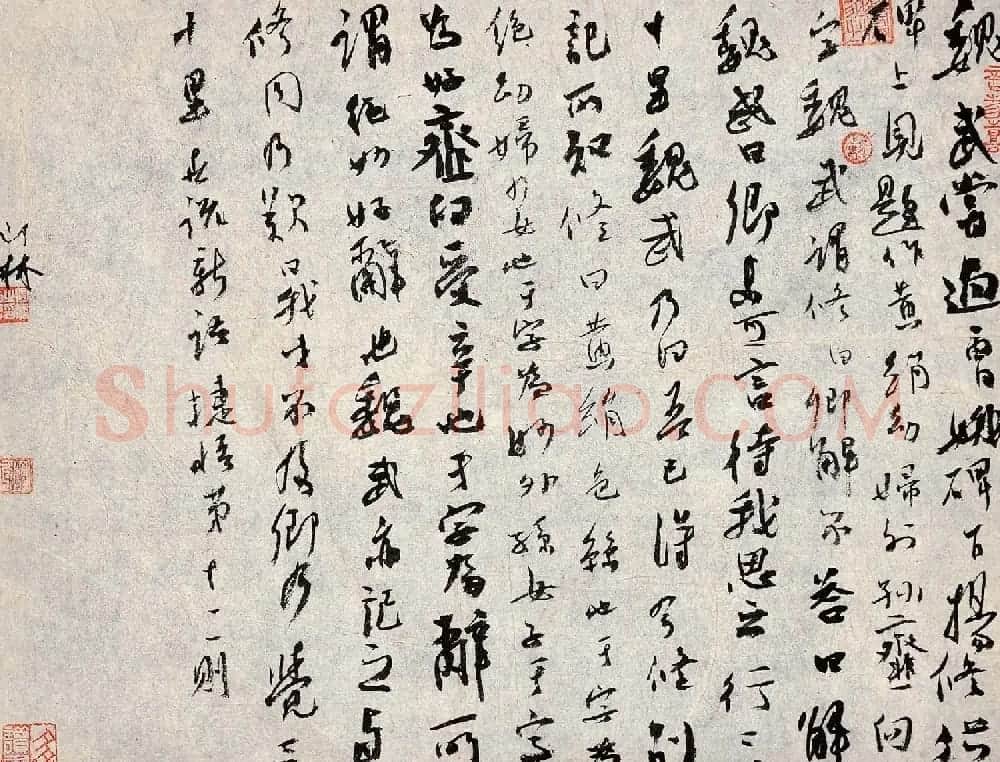 魏武嘗過曹娥碑下楊修從
碑上見題作黃絹幼婦外孫虀臼
字魏武謂修曰卿解不答曰解
魏武曰卿未可言待我思之行三
十里魏武乃曰吾已得令修別
記所知修曰黃絹色絲也于字為
絕幼婦少女也于字為妙外孫女子于字
為好虀臼受辛也于字為辭所
謂絕妙好辭也魏武亦記之與
修同乃歎曰我才不及卿乃覺三
十里世說新語捷悟第十二則
山林
Shufaziliao.COM